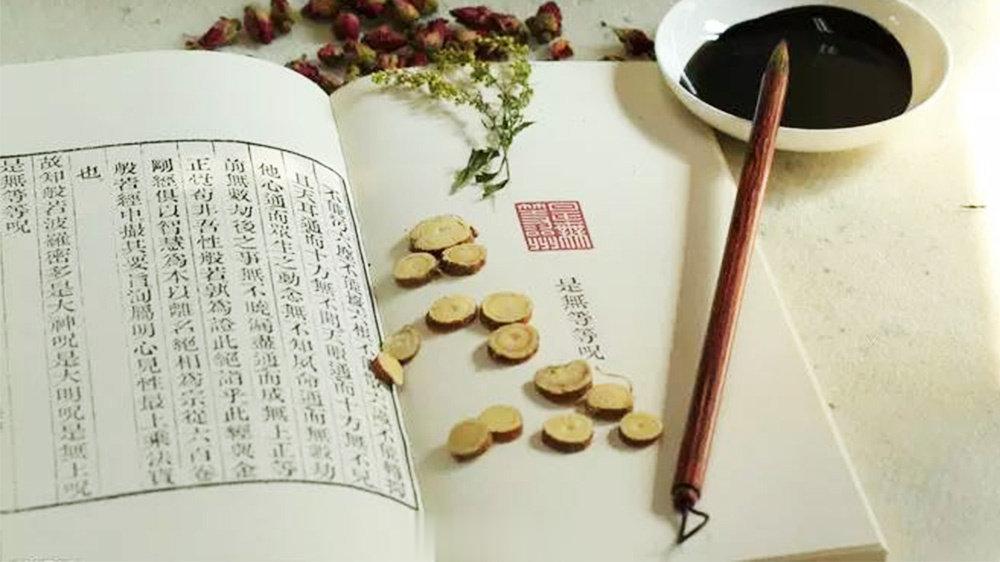 是無等等呪
且天耳通而十方無不聞天眼通而十方無不見
他心通而眾生之動念無不知夙命通而無數劫
前無數劫後之事無不曉漏盡通而成無上正等
正覺苟非吾性般若孰為證此絕詣乎此經與金
剛經俱以智慧為本以離名絕相為宗從六百卷
般若經中撮其要旨洵屬明心見性最上乘法寶
也
故知般若波羅密多是大神呪是大明呪是無上呪
是無等等呪